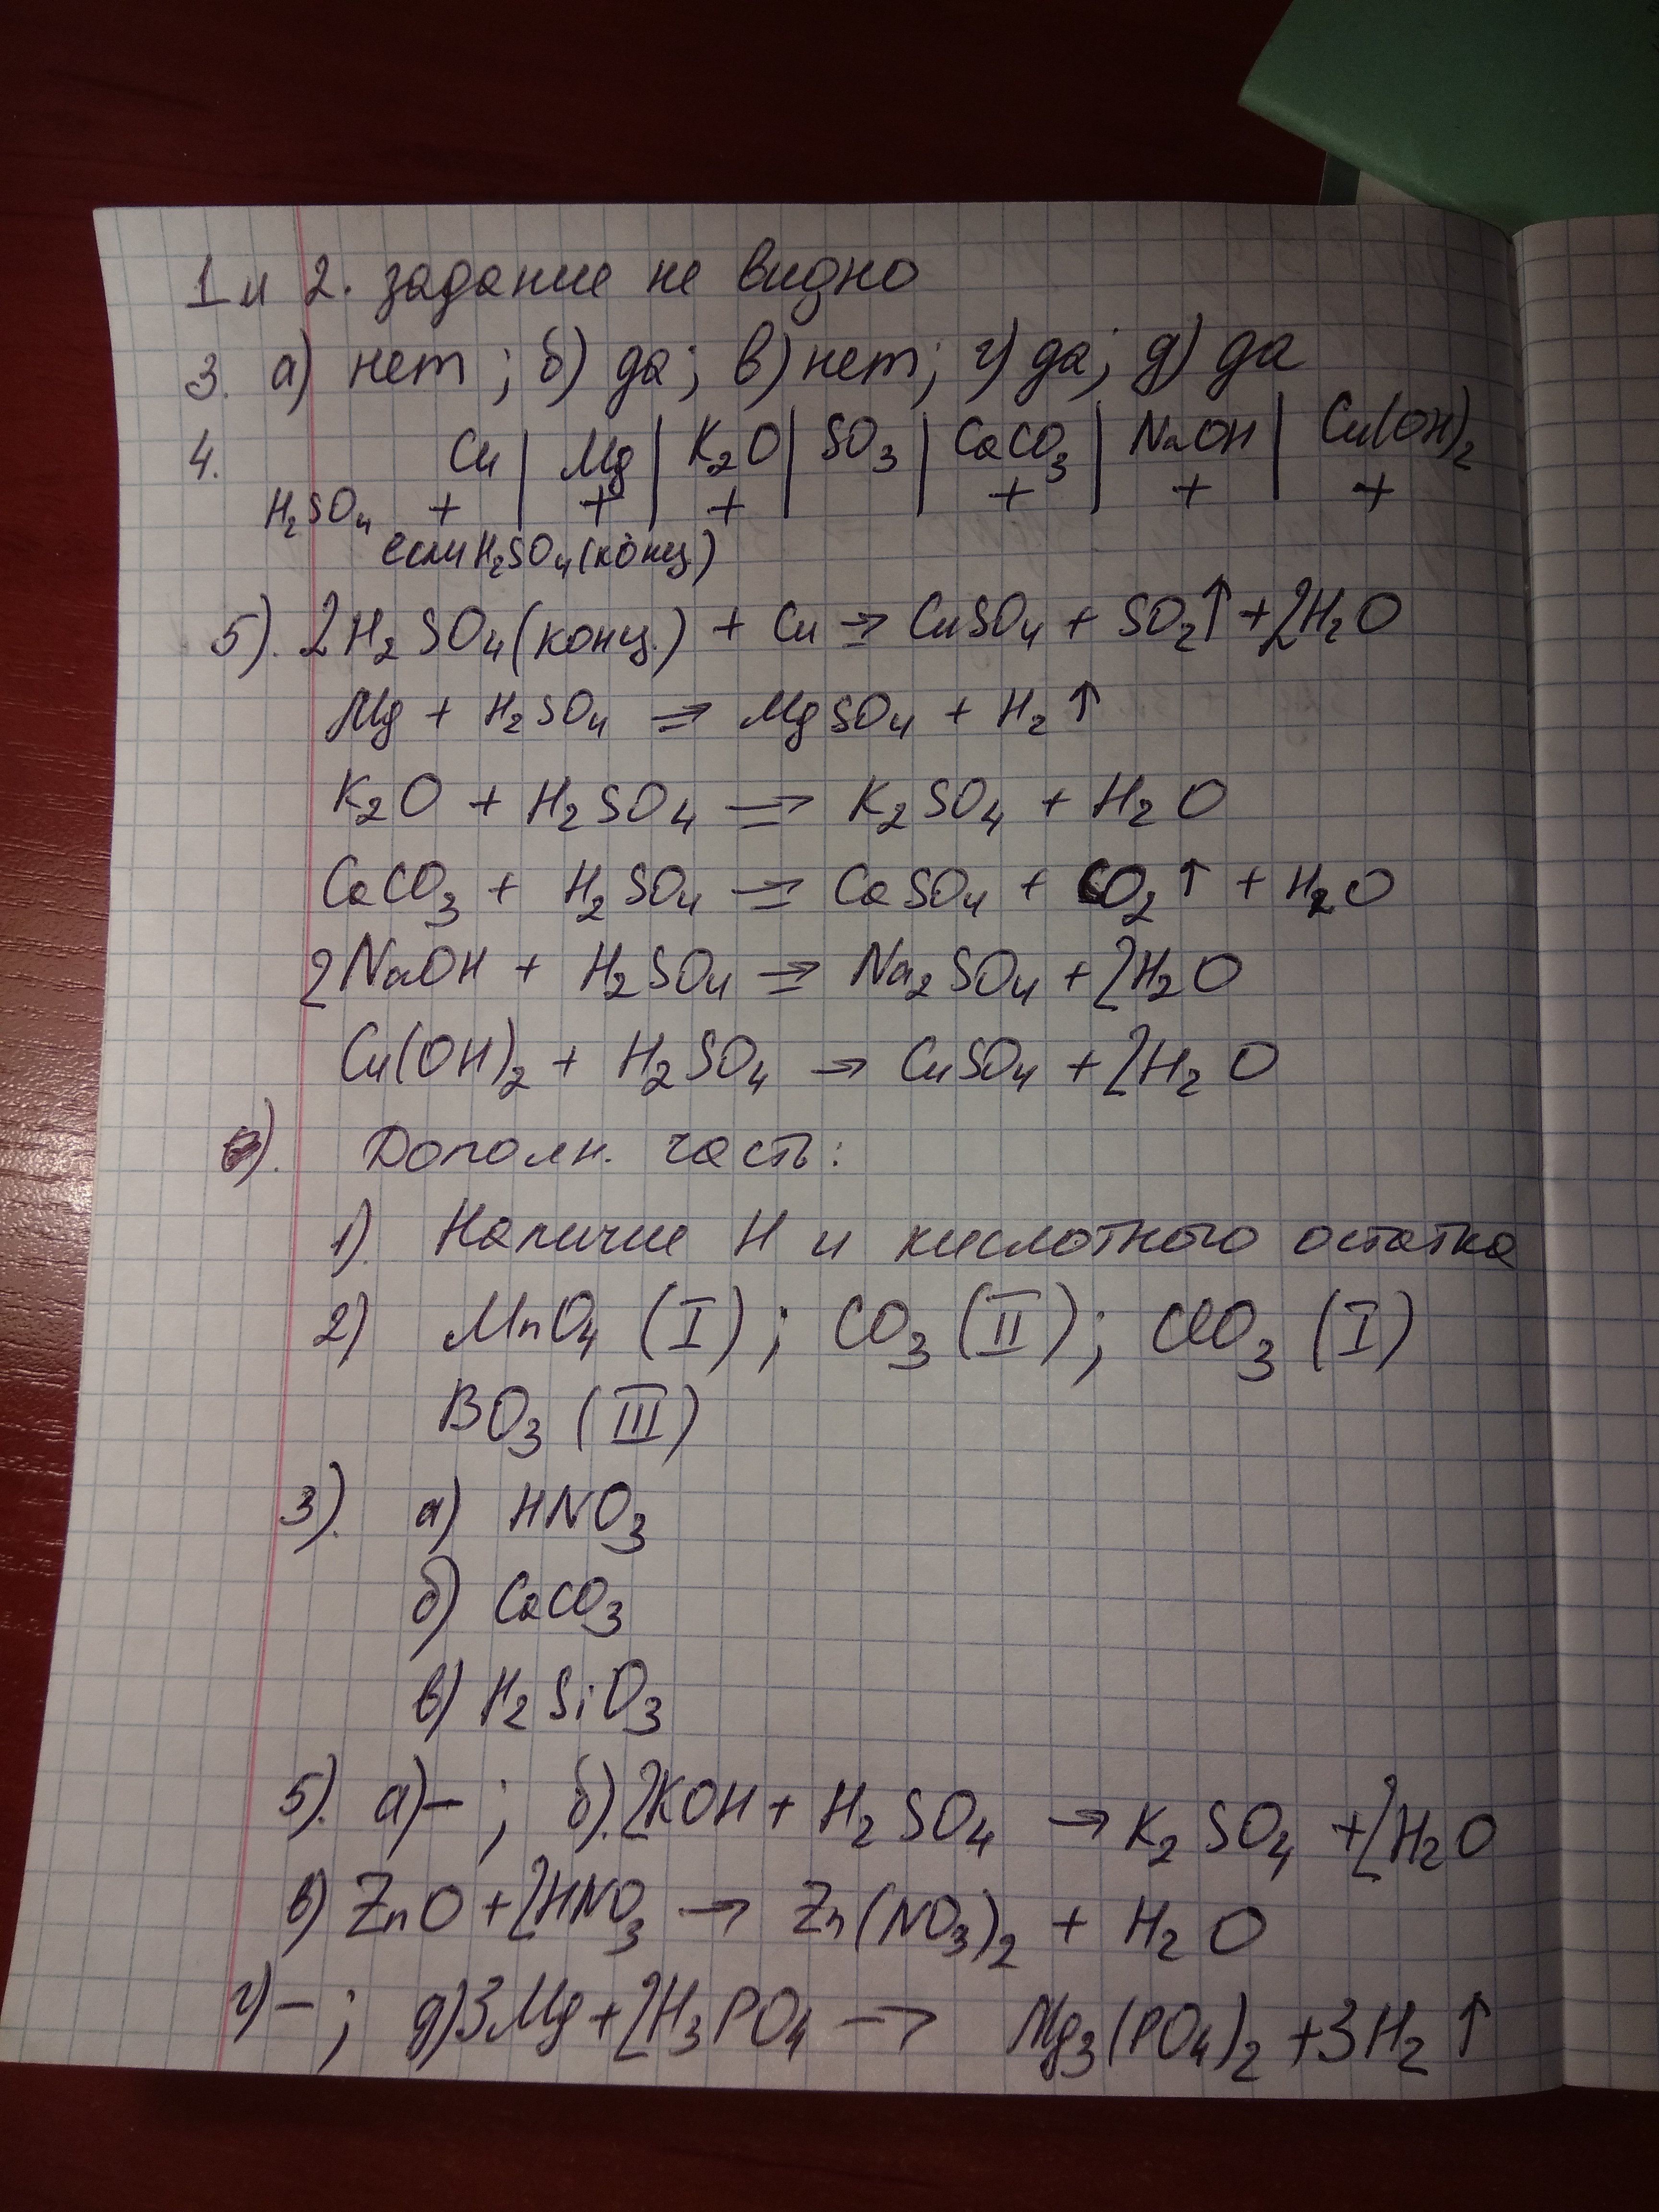 1 и 2. задание не видно
3. а) нет; б) да; в) нет; г) да; д) да
4. Cu | Mg | K₂O | SO₃ | CaCO₃ | NaOH | Cu(OH)₂
H₂SO₄ + + + + + +
если H₂SO₄(конц.)
5). 2H₂SO₄(конц.) + Cu → CuSO₄ + SO₂↑ + 2H₂O
Mg + H₂SO₄ → MgSO₄ + H₂↑
K₂O + H₂SO₄ → K₂SO₄ + H₂O
CaCO₃ + H₂SO₄ → CaSO₄ + CO₂↑ + H₂O
2NaOH + H₂SO₄ → Na₂SO₄ + 2H₂O
Cu(OH)₂ + H₂SO₄ → CuSO₄ + 2H₂O
Дополн. часть:
1). Наличие H и кислотного остатка
2) MnO₄ (I); CO₃ (II); ClO₃ (I)
BO₃ (III)
3). а) HNO₃
б) CaCO₃
в) H₂SiO₃
5). а) –; б). 2KOH + H₂SO₄ → K₂SO₄ + 2H₂O
в) ZnO + 2HNO₃ → Zn(NO₃)₂ + H₂O
г) –; д) 3Mg + 2H₃PO₄ → Mg₃(PO₄)₂ + 3H₂↑